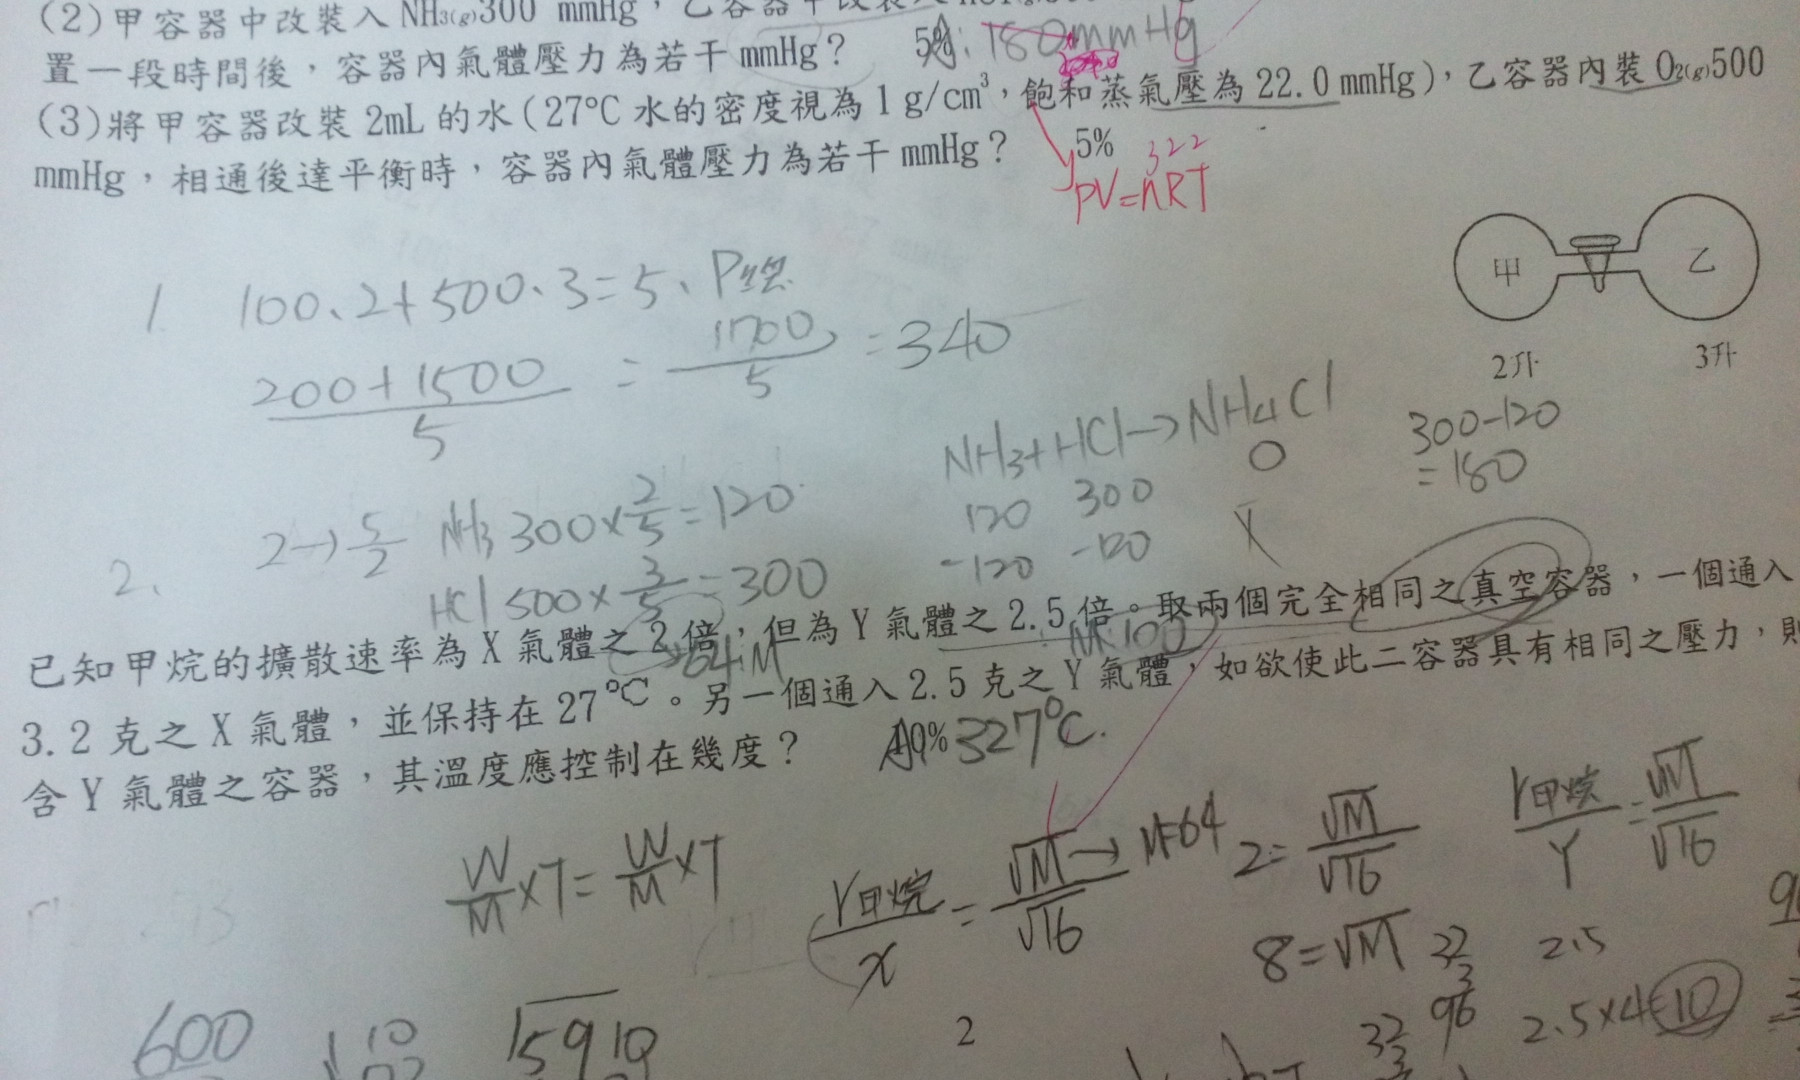 (2)甲容器中改裝入 NH₃₍g₎300 mmHg，乙容器中改裝入
置一段時間後，容器內氣體壓力為若干 mmHg？ 5% A: 180mmHg
(3)將甲容器改裝 2mL 的水(27℃ 水的密度視為 1 g/cm³，飽和蒸氣壓為 22.0 mmHg)，乙容器內裝 O₂₍g₎500
mmHg，相通後達平衡時，容器內氣體壓力為若干 mmHg？ 5%
322
PV=nRT
甲 乙
2升 3升
1. 100·2+500·3=5·P
200+1500/5 = 1700/5 =340
2. 2→5/2 NH3 300×2/5=120
HCl 500×3/5=300
NH3+HCl→NH4Cl
120 300 0
-120 -120 X
300-120
=180
已知甲烷的擴散速率為 X 氣體之 2 倍，但為 Y 氣體之 2.5 倍。取兩個完全相同之真空容器，一個通入
64=M M=100
3.2 克之 X 氣體，並保持在 27℃。另一個通入 2.5 克之 Y 氣體，如欲使此二容器具有相同之壓力，則
含 Y 氣體之容器，其溫度應控制在幾度？ 10% A 327℃.
W/M×T=W/M×T
r甲烷/x = √M/√16 → M=64
2=√M/√16
r甲烷/Y=√M/√16
8=√M
32
3
96
2.5
2.5×4=10
600
10
5910
32
3
2